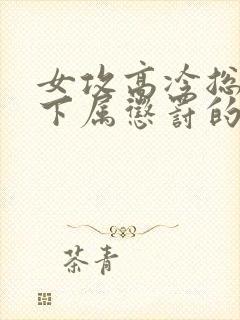 女攻高冷总
下属惩罚的
茶青